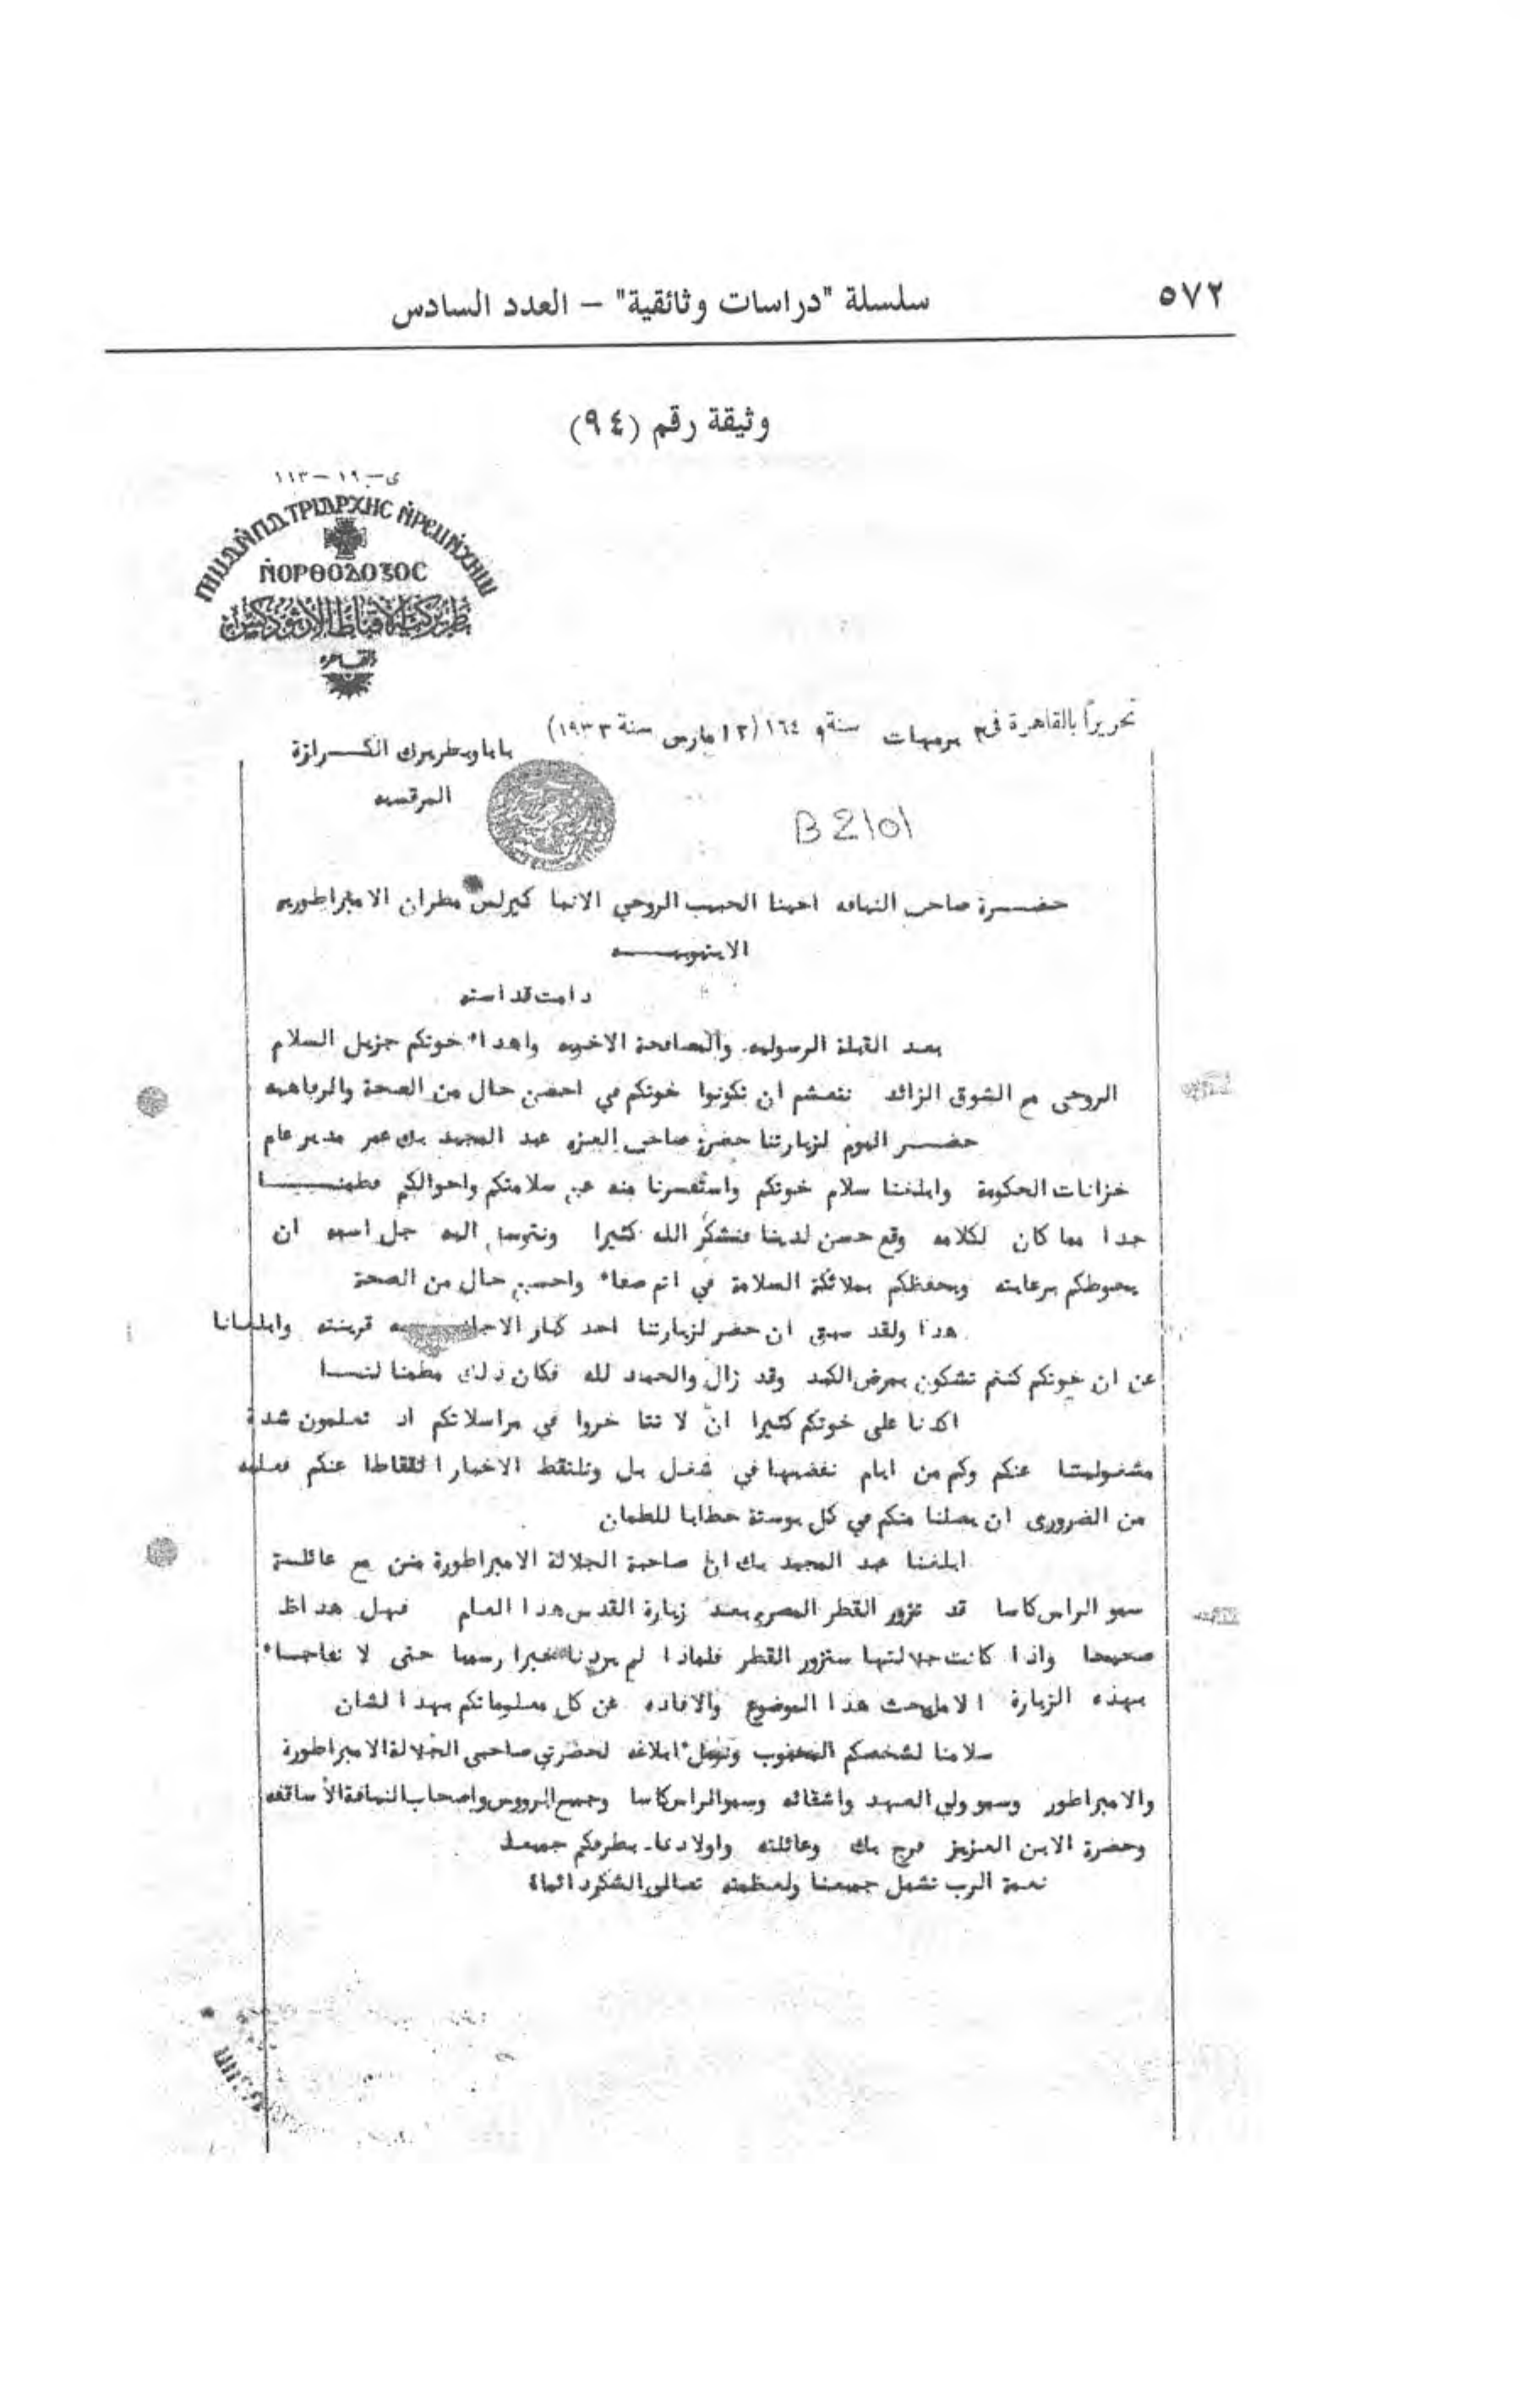 ٥٧٢
سلسلة "دراسات وثائقية" – العدد السادس
وثيقة رقم (٩٤)
ى – ١٩ – ١١٣
ⲠⲒⲘⲀⲚⲠⲀⲦⲢⲒⲀⲢⲬⲎⲤ ⲚⲢⲈⲘⲚⲬⲎⲘⲒ
ⲚⲞⲢⲐⲞⲆⲞⲜⲞⲤ
بطريركية الاقباط الارثوذكس
القاهرة
تحريرًا بالقاهرة فى برمهات سنة ١٦٤ (١٢ مارس سنة ١٩٣٣)
بابا وبطريرك الكرازة
المرقسيه
B 2101
حضرة صاحب النيافه اخينا الحبيب الروحي الانبا كيرلس مطران الامبراطوريه
الاثيوبيه
دامت قداسته
بعد القبلة الرسوليه والمصافحة الاخويه واهداء خوتكم جزيل السلام
الروحى مع الشوق الزائد نتعشم ان تكونوا خوتكم في احسن حال من الصحة والرفاهيه
حضر اليوم لزيارتنا حضرة صاحب العزه عبد المجيد بك عمر مدير عام
خزانات الحكومة وابلغنا سلام خوتكم واستفسرنا منه عن سلامتكم واحوالكم فطمنا
جدا مما كان لكلامه وقع حسن لدينا فنشكر الله كثيرا ونتوسل اليه جل اسمه ان
يحوطكم برعايته ويحفظكم بملائكة السلامة في اتم صفاء واحسن حال من الصحة
هذا ولقد سبق ان حضر لزيارتنا احد كبار الاجانب قرينته وابلغانا
عن ان خوتكم كنتم تشكون بمرض الكبد وقد زال والحمد لله فكان ذلك مطمنا لنا
اكدنا على خوتكم كثيرا ان لا تتاخروا في مراسلاتكم اذ تعلمون شدة
مشغوليتنا عنكم وكم من ايام نقضيها في شغل بل ونلتقط الاخبار التقاطا عنكم فعليه
من الضرورى ان يصلنا منكم في كل بوستة خطابا للطمان
ابلغنا عبد المجيد بك ان صاحبة الجلالة الامبراطورة منن مع عائلة
سمو الراس كاسا قد تزور القطر المصرى بعد زيارة القدس هذا العام فهل هذا
صحيحا واذا كانت جلالتها ستزور القطر فلماذا لم يردنا خبرا رسميا حتى لا نفاجاء
بهذه الزيارة الامل بحث هذا الموضوع والافاده عن كل معلوماتكم بهذا الشان
سلامنا لشخصكم المحبوب ابلاغه لحضرتي صاحبى الجلالة الامبراطورة
والامبراطور وسمو ولي العهد واشقائه وسمو الراس كاسا وجميع الرووس واصحاب النيافة الأساقفه
وحضرة الابن العزيز فرج بك وعائلته واولادنا بطرفكم جميعا
نعمة الرب تشمل جميعنا ولعظمته تعالى الشكر دائما